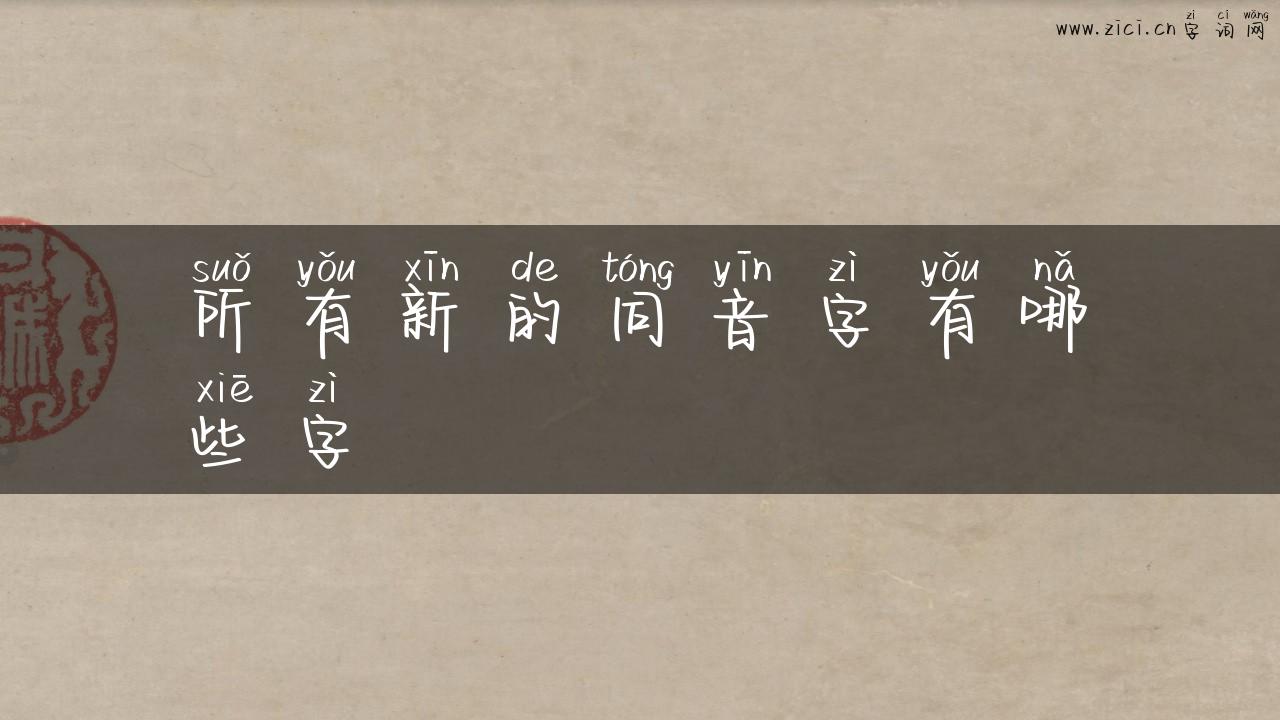 zì cí wǎng
www.zici.cn字词网
suǒ yǒu xīn de tóng yīn zì yǒu nǎ
所有新的同音字有哪
xiē zì
些字